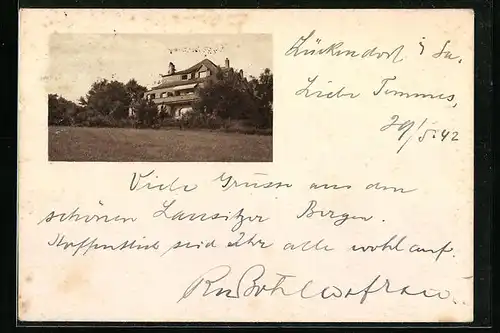 Lückendorf i/Sa.
Liebe Tommes,
29/5.42
Viele Grüsse aus den
schönen Lausitzer Bergen.
Hoffentlich seid Ihr alle wohlauf.